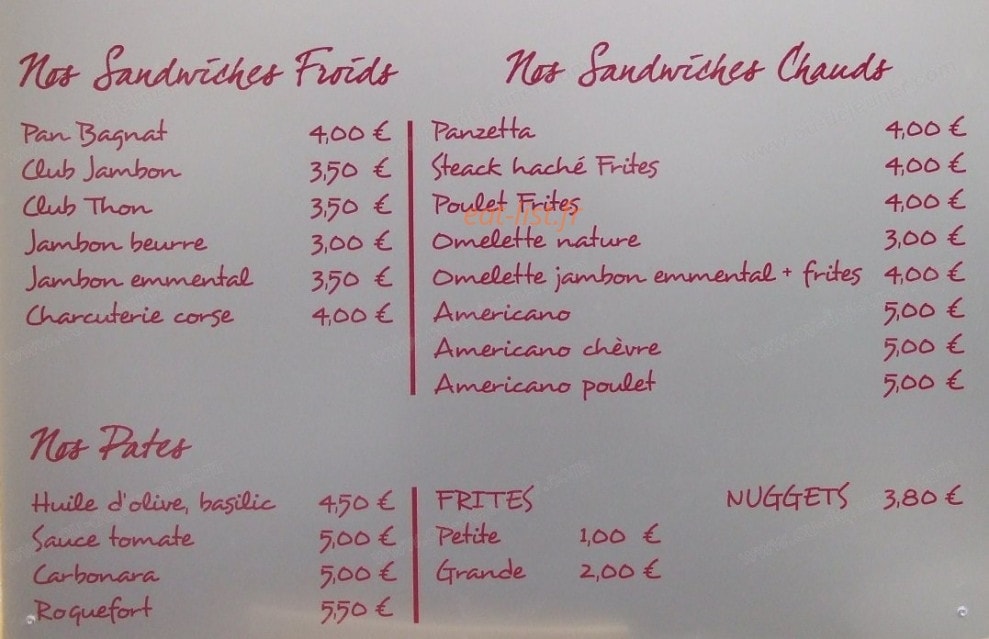 Nos Sandwiches Froids
Pan Bagnat 4,00 €
Club Jambon 3,50 €
Club Thon 3,50 €
Jambon beurre 3,00 €
Jambon emmental 3,50 €
Charcuterie corse 4,00 €
Nos Sandwiches Chauds
Panzetta 4,00 €
Steack haché Frites 4,00 €
Poulet Frites 4,00 €
eat-list.fr
Omelette nature 3,00 €
Omelette jambon emmental + frites 4,00 €
Americano 5,00 €
Americano chèvre 5,00 €
Americano poulet 5,00 €
Nos Pates
Huile d'olive, basilic 4,50 €
Sauce tomate 5,00 €
Carbonara 5,00 €
Roquefort 5,50 €
FRITES
Petite 1,00 €
Grande 2,00 €
NUGGETS 3,80 €